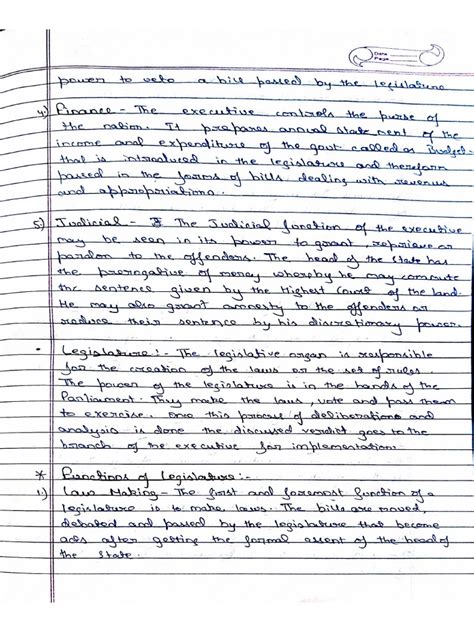 Date
Page
power to veto a bill passed by the legislature
4) Finance - The executive controls the purse of
the nation. It prepares annual statement of the
income and expenditure of the govt. called as Budget
that is introduced in the legislature and therefore
passed in the forms of bills dealing with revenue
and appropriations.
5) Judicial - The Judicial function of the executive
may be seen in its power to grant, reprieve or
pardon to the offenders. The head of the state has
the prerogative of mercy whereby he may commute
the sentence given by the Highest Court of the land.
He may also grant amnesty to the offenders or
reduce their sentence by his discretionary power.
• Legislature :- The legislative organ is responsible
for the creation of the laws or the set of rules.
The power of the legislature is in the hands of the
Parliament. They make the laws, vote and pass them
to exercise. Once this process of deliberations and
analysis is done the discussed verdict goes to the
branch of the executive for implementation.
* Functions of Legislature :-
1.) Law Making - The first and foremost function of a
legislature is to make laws. The bills are moved,
debated and passed by the legislature that become
acts after getting the formal assent of the head of
the state.